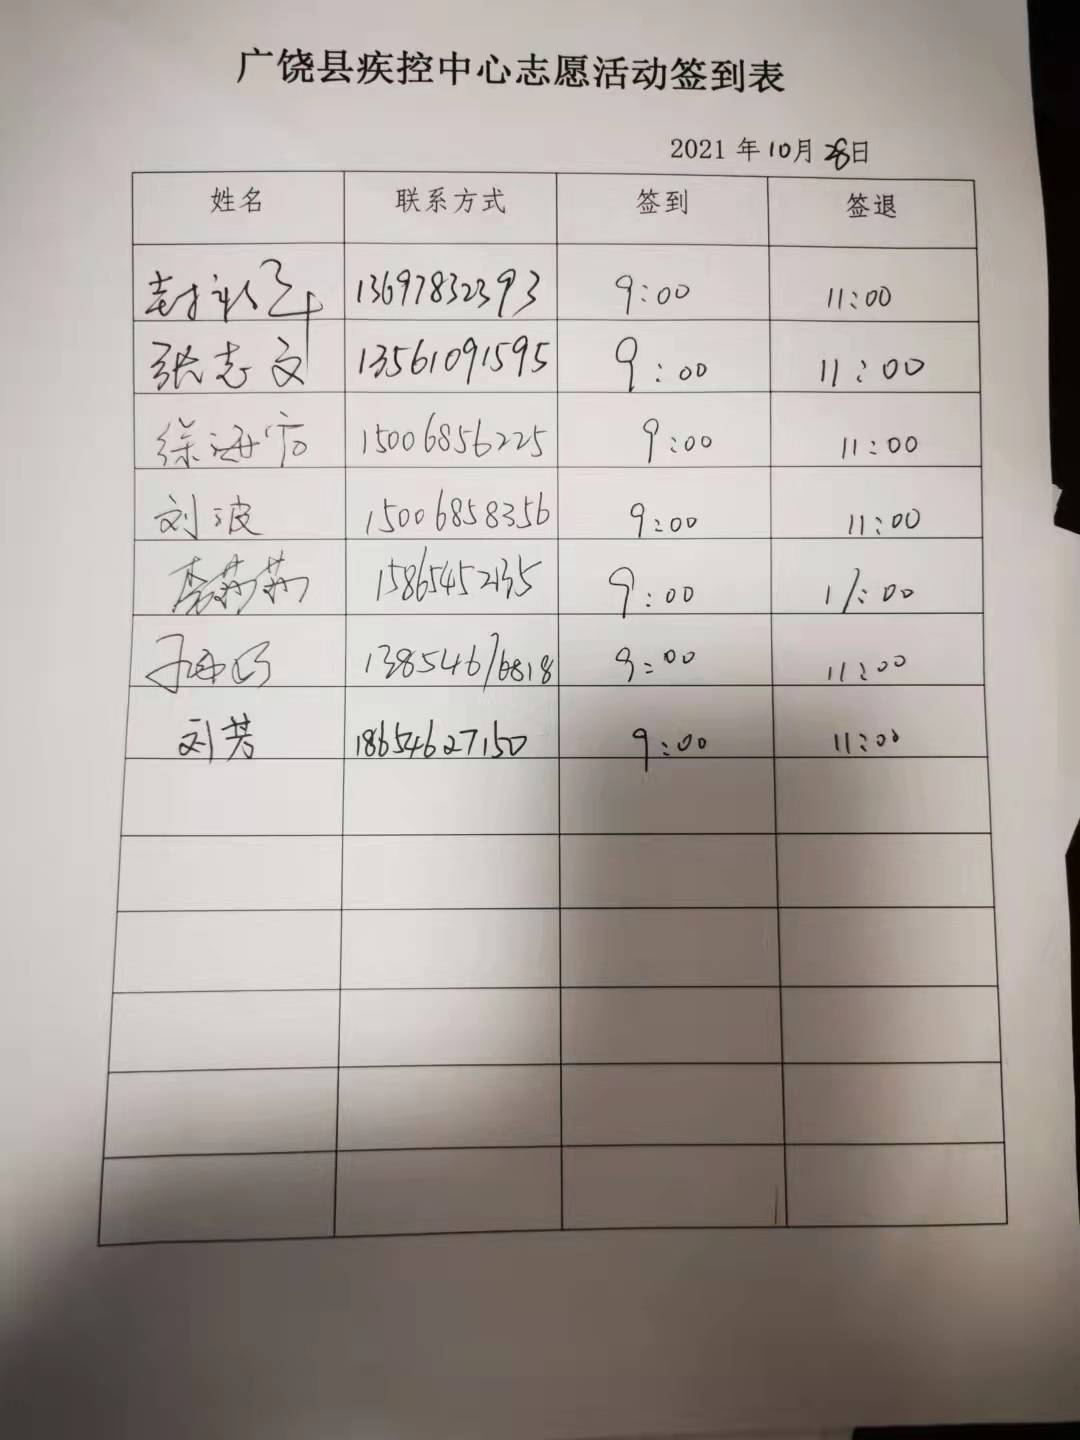 广饶县疾控中心志愿活动签到表
2021 年 10月 28日
姓名 联系方式 签到 签退
13697832393 9:00 11:00
张志文 13561091595 9:00 11:00
徐海 15006856225 9:00 11:00
刘波 15006858356 9:00 11:00
李莉莉 15865452135 9:00 11:00
13854676818 9:00 11:00
刘芳 18654627150 9:00 11:00